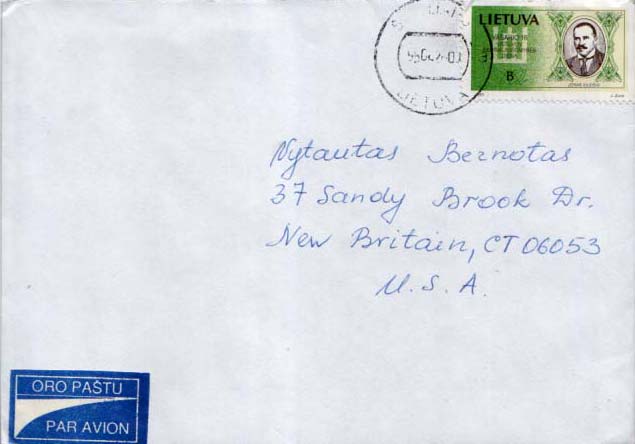 LIETUVA
VASARIO 16
B
LIETUVA
Vytautas Bernotas
37 Sandy Brook Dr.
New Britain, CT 06053
U. S. A.
ORO PAŠTU
PAR AVION